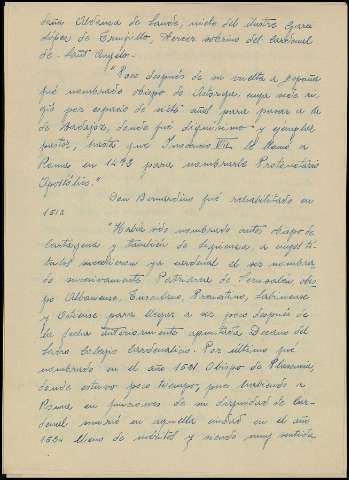 doña Aldonza de Lande, nieto del ilustre Garci
López de Carvajal, tercer sobrino del cardenal
de Sant Angelo.
"Poco después de su vuelta a España
fué nombrado obispo de Astorga, cuya sede ri-
gió por espacio de siete años para pasar a la
de Badajoz, donde fué dignísimo y ejemplar
pastor, hasta que Inocencio VIII le llamó a
Roma en 1493 para nombrarle Protonotario
Apostólico."
Don Bernardino fué rehabilitado en
1513
"Había sido nombrado antes obispo de
Cartagena y también de Sigüenza, a cuyos tí-
tulos mencionan ya cardenal el ser nombra-
do sucesivamente Patriarca de Jerusalén, obis-
po Albanense, Tusculano, Prenestino, Sabinense
y Ostiense para llegar a ser poco después de
la fecha anteriormente apuntada Decano del
Sacro Colegio Cardenalicio. Por último fué
nombrado en el año 1521 Obispo de Plasencia,
donde estuvo poco tiempo, pues habiendo a
Roma en funciones de su dignidad de Car-
denal murió en aquella ciudad en el año
1524 lleno de méritos y siendo muy sentida